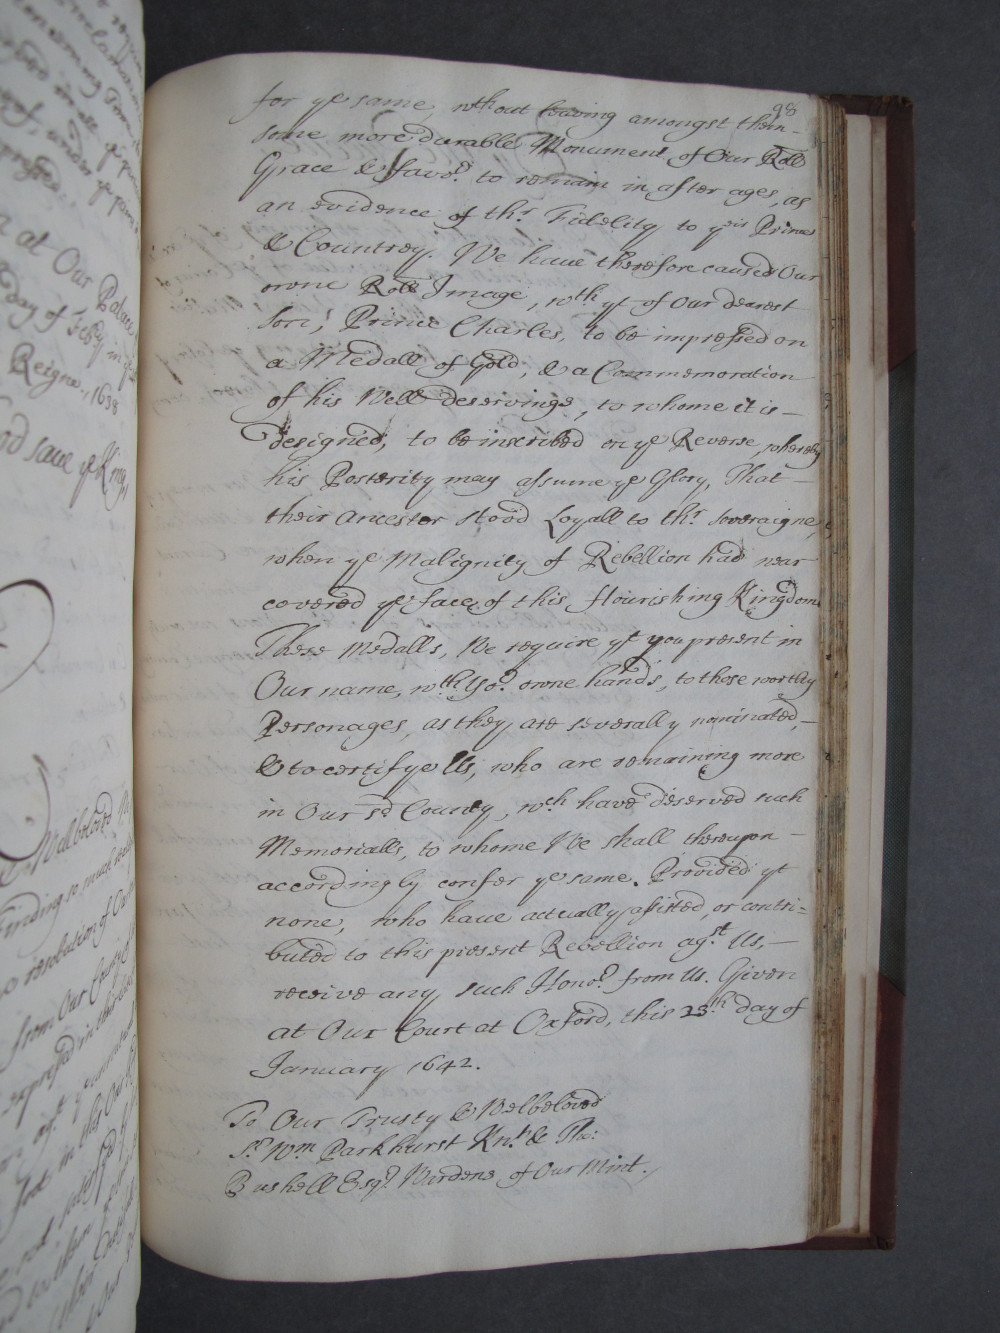 98
for ye same, wthout leaving amongst them -
some more durable Monument of Our Roll
Grace & favor. to remain in after ages, as
an evidence of thr. Fidelity to yeir Prince
& Countrey. We have therefore caused Our
owne Roll Image, wth yt of Our dearest
Son, Prince Charles, to be impressed on
a Medall of Gold, & a Commemoration
of his Well deservings, to whome it is -
designed, to be inscribed on ye Reverse, whereby
his Posterity may assume ye Glory, That -
their Ancestor stood Loyall to thr. Soveraigne,
when ye Malignity of Rebellion had near
covered ye face of this flourishing Kingdome
These Medalls, We require yt you present in
Our name, wth yor. owne hands, to those worthy
Personages, as they are severally nominated, -
& to certifye Us, who are remaining more
in Our sd County, wch have deserved such
Memorialls, to whome We shall thereupon -
accordingly confer ye same. Provided yt
none, who have actually assisted, or contri=
buted to this present Rebellion agst. Us, -
receive any such Honor. from Us. Given
at Our Court at Oxford, this 23th day of
January 1642.
To Our Trusty & Welbeloved
Sr. Wm Parkhurst Knt. & Tho:
Bushell Esqr. Wardens of Our Mint.
at Our Palace
day of Feby in ye
Reigne, 1638
God save ye King
Wellbeloved We
finding so much
resolution of Our
from Our County of
expressed in this